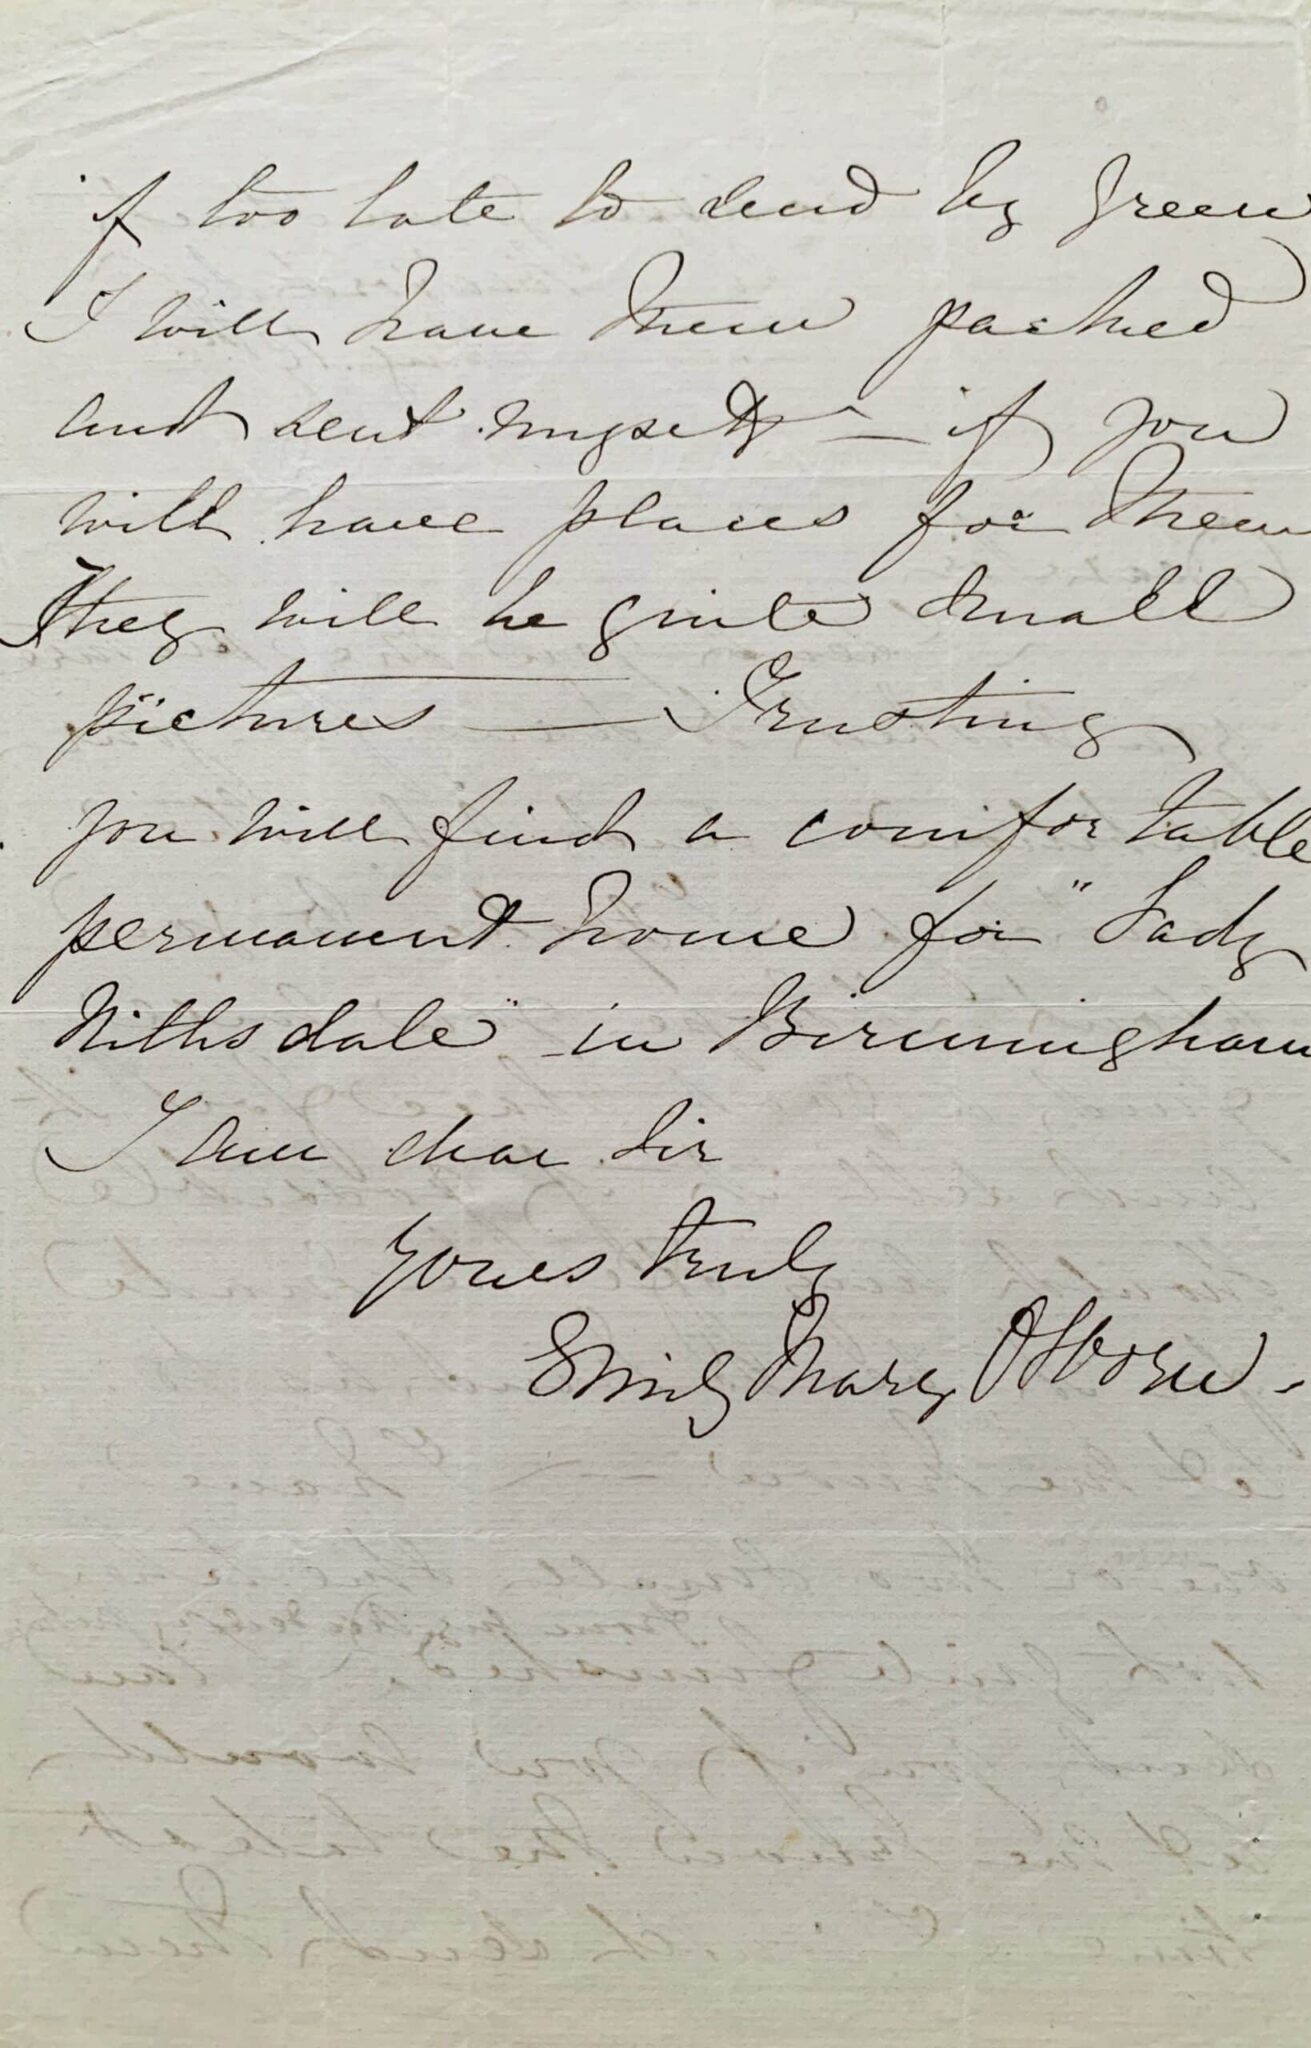 if too late to send by Green
I will have them packed
and sent myself — if you
will have places for them
They will be quite small
pictures — Trusting
you will find a comfortable
permanent home for "Lady
Nithsdale" in Birmingham
I am dear Sir
Yours truly
Emily Mary Osborn.